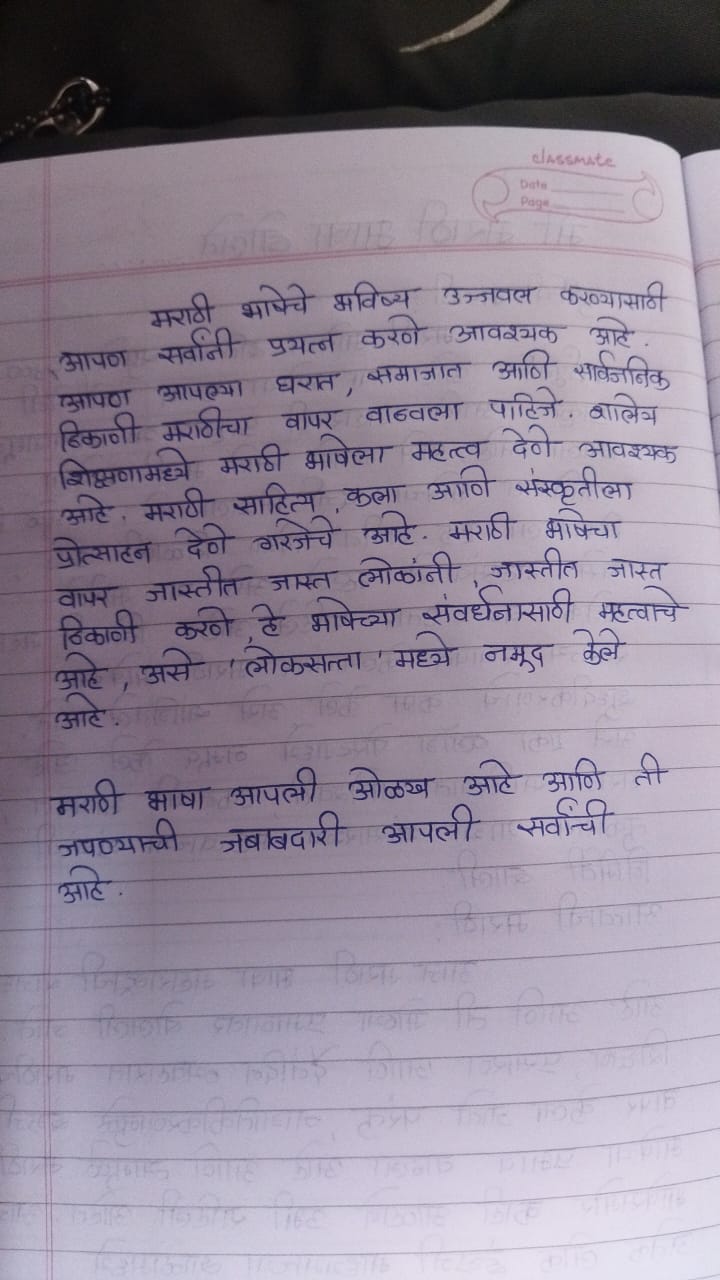 classmate
Date
Page
मराठी भाषेचे भविष्य उज्जवल करण्यासाठी
आपण सर्वांनी प्रयत्न करणे आवश्यक आहे.
आपण आपल्या घरात, समाजात आणि सार्वजनिक
ठिकाणी मराठीचा वापर वाढवला पाहिजे. शालेय
शिक्षणामध्ये मराठी भाषेला महत्व देणे आवश्यक
आहे. मराठी साहित्य, कला आणि संस्कृतीला
प्रोत्साहन देणे गरजेचे आहे. मराठी भाषेचा
वापर जास्तीत जास्त लोकांनी, जास्तीत जास्त
ठिकाणी करणे, हे भाषेच्या संवर्धनासाठी महत्वाचे
आहे, असे 'लोकसत्ता' मध्ये नमूद केले
आहे.
मराठी भाषा आपली ओळख आहे आणि ती
जपण्याची जबाबदारी आपली सर्वांची
आहे.